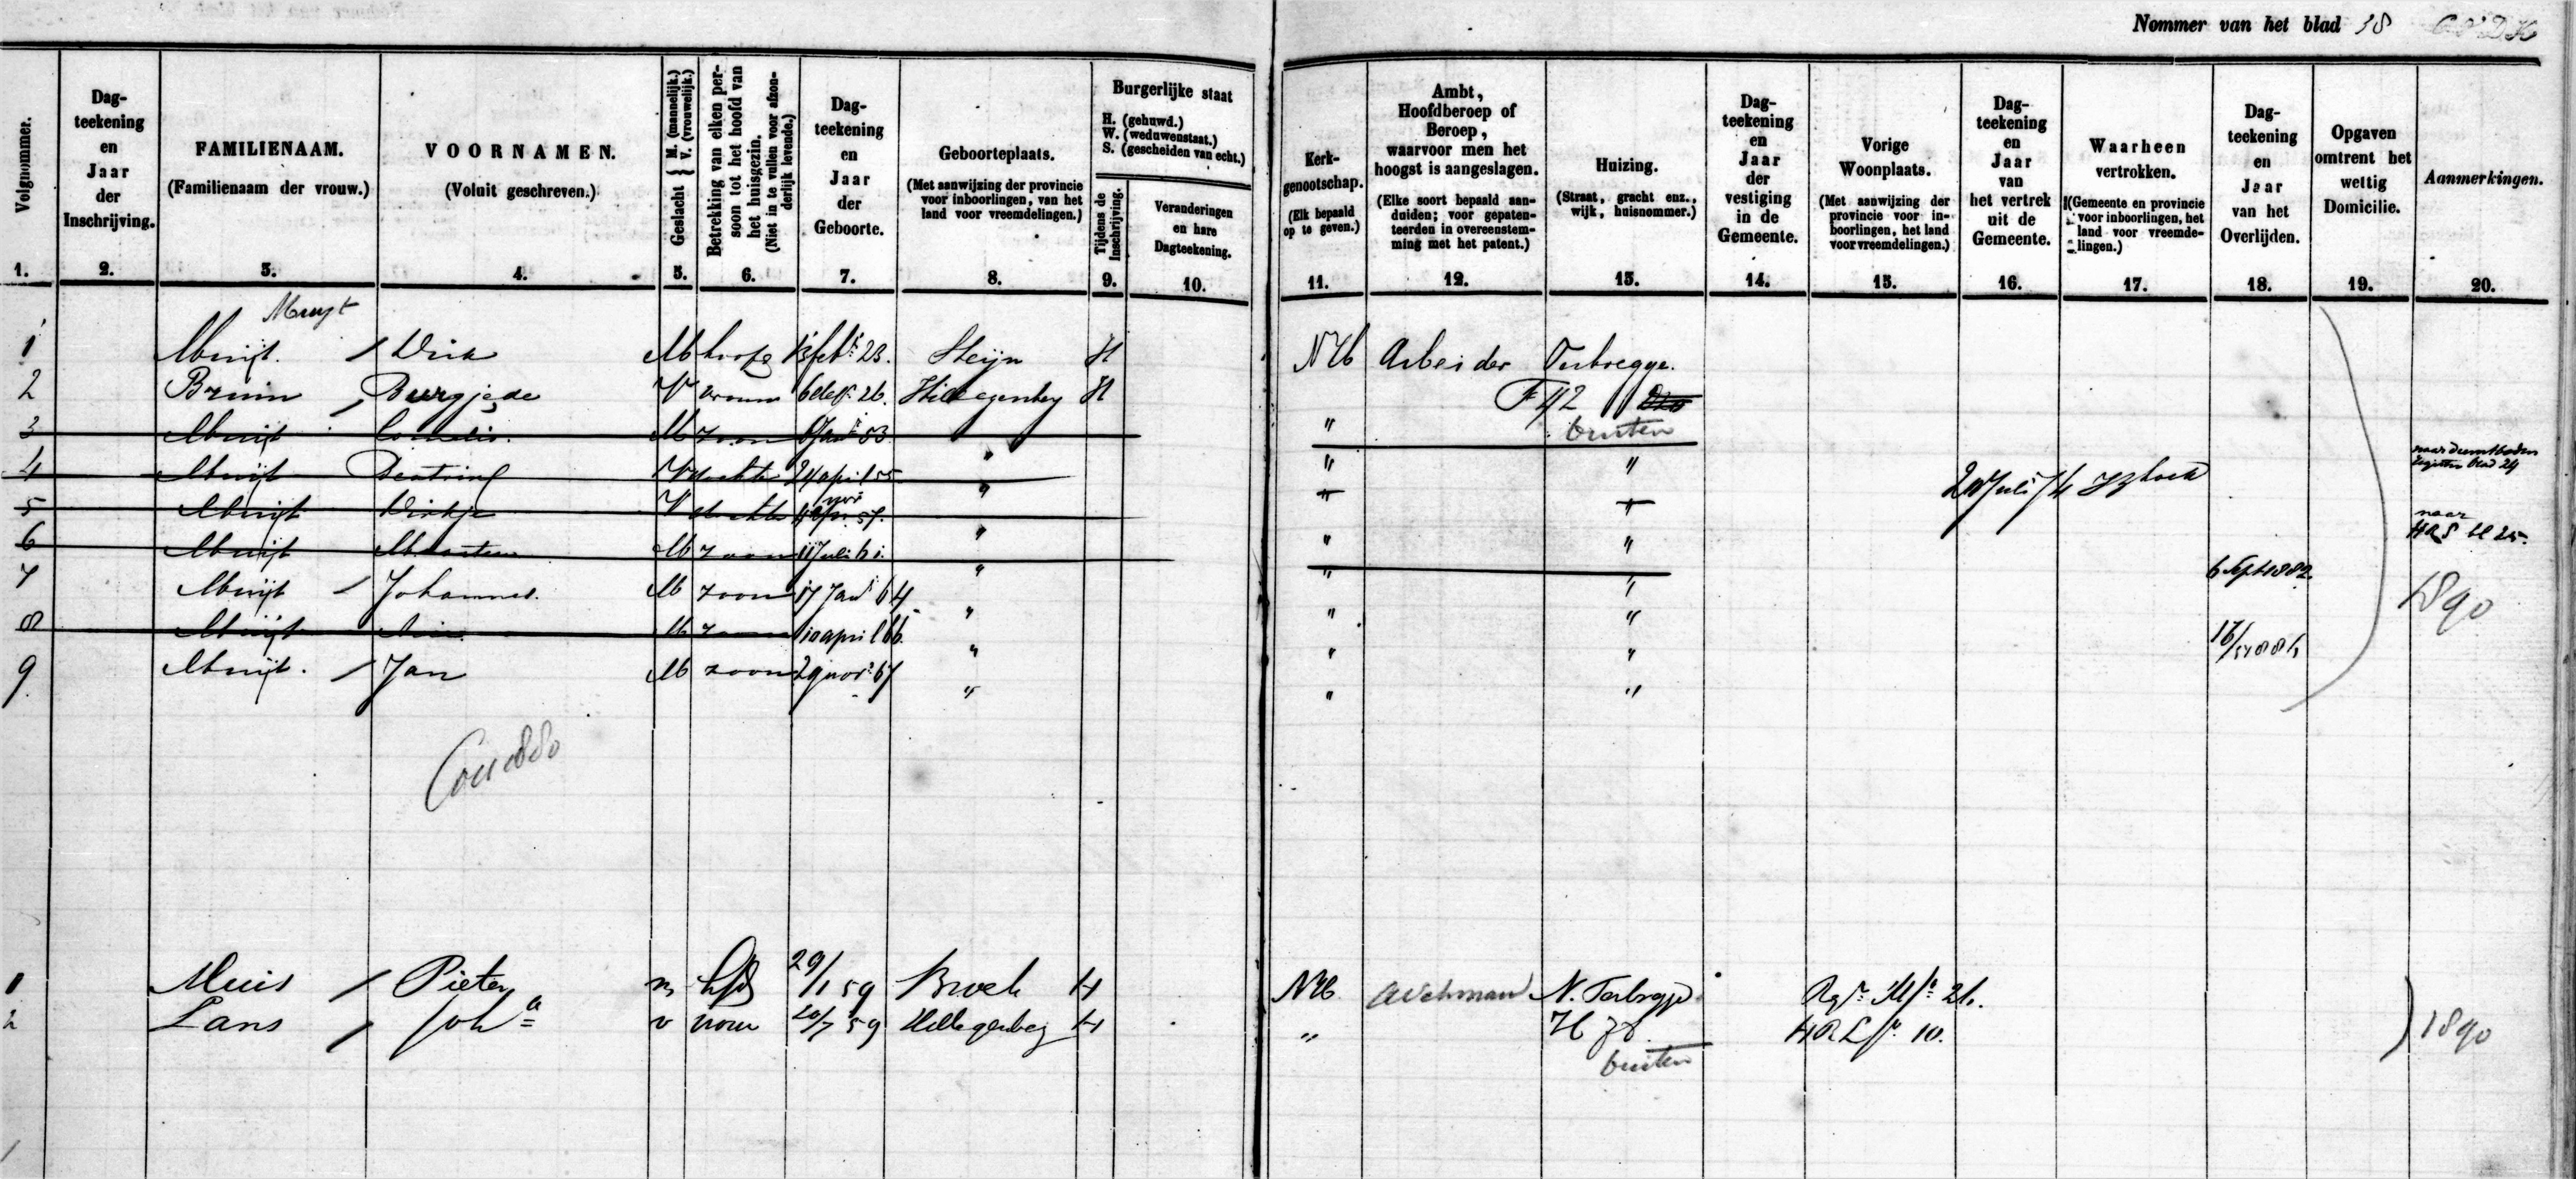 Nommer van het blad 38
Volgnommer.
Dag-
teekening
en
Jaar
der
Inschrijving.
FAMILIENAAM.
(Familienaam der vrouw.)
VOORNAMEN.
(Voluit geschreven.)
Geslacht { M. (mannelijk.)
V. (vrouwelijk.)
Betrekking van elken per-
soon tot het hoofd van
het huisgezin.
(Niet in te vullen voor afzon-
derlijk levende.)
Dag-
teekening
en
Jaar
der
Geboorte.
Geboorteplaats.
(Met aanwijzing der provincie
voor inboorlingen, van het
land voor vreemdelingen.)
Burgerlijke staat
H. (gehuwd.)
W. (weduwenstaat.)
S. (gescheiden van echt.)
Tijdens de
Inschrijving.
Veranderingen
en hare
Dagteekening.
Kerk-
genootschap.
(Elk bepaald
op te geven.)
Ambt,
Hoofdberoep of
Beroep,
waarvoor men het
hoogst is aangeslagen.
(Elke soort bepaald aan-
duiden; voor gepaten-
teerden in overeenstem-
ming met het patent.)
Huizing.
(Straat, gracht enz.,
wijk, huisnommer.)
Dag-
teekening
en
Jaar
der
vestiging
in de
Gemeente.
Vorige
Woonplaats.
(Met aanwijzing der
provincie voor in-
boorlingen, het land
voor vreemdelingen.)
Dag-
teekening
en
Jaar
van
het vertrek
uit de
Gemeente.
Waarheen
vertrokken.
(Gemeente en provincie
voor inboorlingen, het
land voor vreemde-
lingen.)
Dag-
teekening
en
Jaar
van het
Overlijden.
Opgaven
omtrent het
wettig
Domicilie.
Aanmerkingen.
1. 2. 3. 4. 5. 6. 7. 8. 9. 10. 11. 12. 13. 14. 15. 16. 17. 18. 19. 20.
Muyt
1 Muijt. / Dirk M hoofd 13 feb 23. Steijn H NH Arbeider Terbregge.
2 Bruin / Burgje de V vrouw 6 26. Hillegersberg H F 42
3 Muijt Cornelis. M zoon 6 Jan 53 " " buiten
4 Muijt V dochter 24 april 55 " " " 20 Juli 74 naar dienstboden
register blad 24
5 Muijt Dirkje V dochter nov 57. " " "
6 Muijt Maarten M zoon 11 Juli 61. " " " naar
HRS bl 25.
7 Muijt / Johannes. M zoon 17 Jan 64 " " " 6 Sept 1882 1890
8 Muijt M zoon 10 april 66. " " " 16/
9 Muijt. / Jan M zoon 29 nov 67 " " "
1 Muis / Pieter m hfd 29/1 59 Broek H NH N. Terbregge. Rgr M fo 26.
2 Lans / Joha v vrouw 20/7 59 Hillegersberg H " H HR L fo 10. 1890
buiten